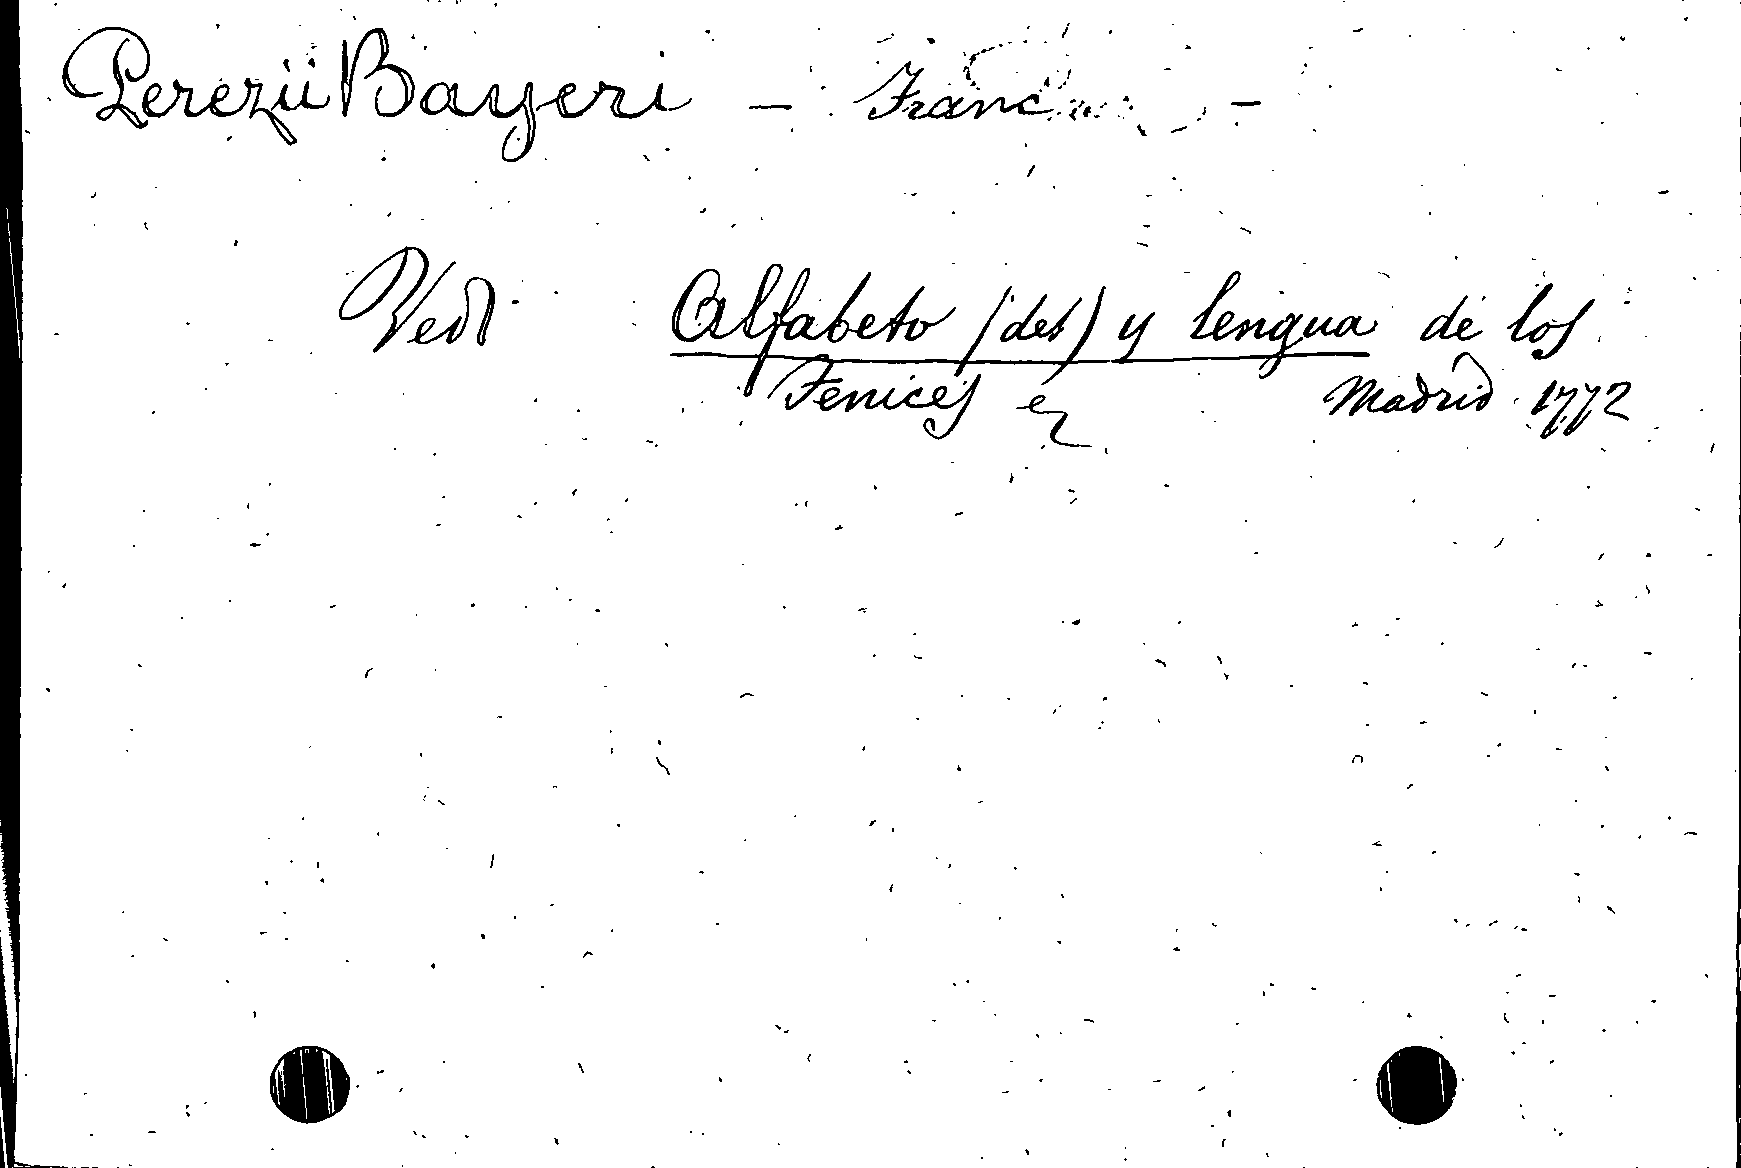 Perezii Bayeri - Franc -
Vedi Alfabeto (del) y lengua de los
Fenices Madrid 1772